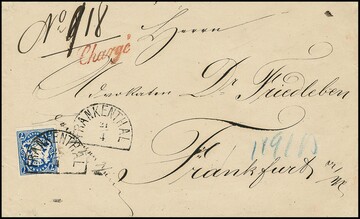 No 918
Chargé
Herrn
Advokaten Dr. Friedleben
FRANKENTHAL
21
4
FRANKENTHAL
Frankfurt a/M.